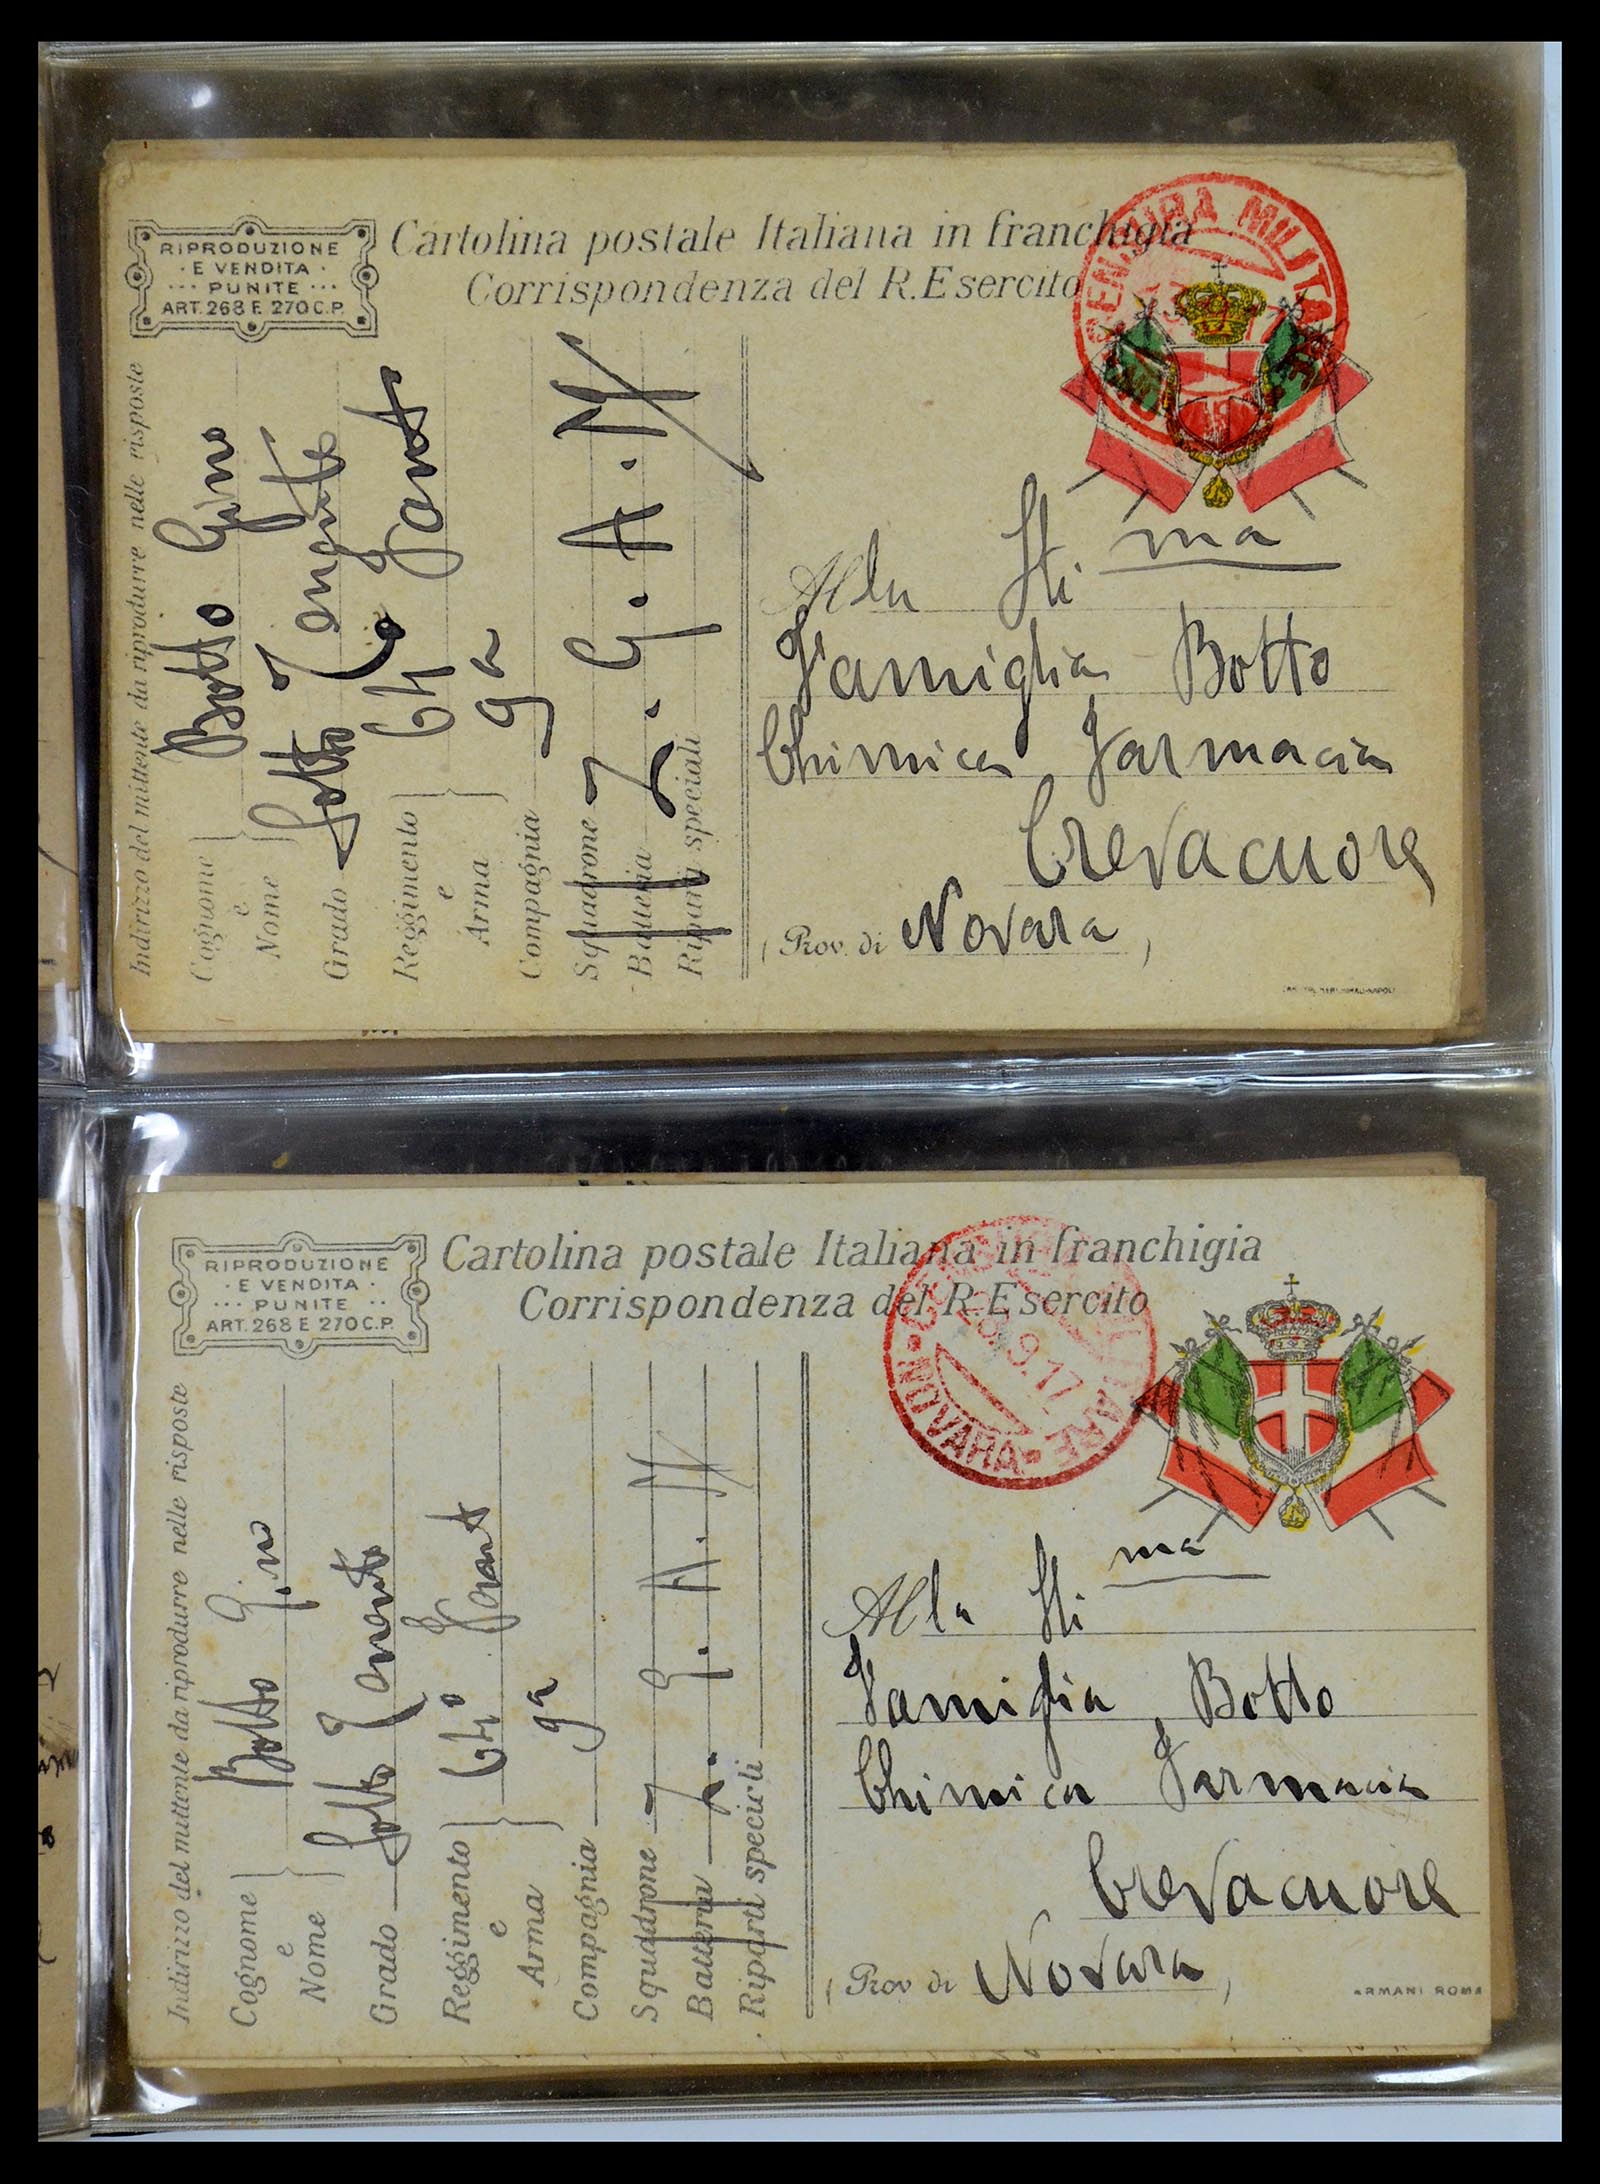 RIPRODUZIONE
· E VENDITA ·
··· PUNITE ···
ART. 268 E 270 C.P.
Cartolina postale Italiana in franchigia
Corrispondenza del R. Esercito
CENSURA MILITARE
Indirizzo del mittente da riprodurre nelle risposte
Cognome e Nome } Botto Gino
Grado Sotto Tenente
Reggimento e Arma } 64° Fant
Compagnia 9a
Squadrone Z
Batteria Z. G. A. M
Riparti speciali
Alla Sti ma
Famiglia Botto
Chimica Farmacia
Crevacuore
(Prov. di Novara)
RIPRODUZIONE
· E VENDITA ·
··· PUNITE ··
ART. 268 E 270 C.P.
Cartolina postale Italiana in franchigia
Corrispondenza del R. Esercito
28.9.17
· NOVARA ·
Indirizzo del mittente da riprodurre nelle risposte
Cognome e Nome } Botto Gino
Grado Sotto Tenente
Reggimento e Arma } 64° Fant
Compagnia 9a
Squadrone Z
Batteria Z. G. A. M
Riparti speciali
Alla Sti ma
Famiglia Botto
Chimica Farmacia
Crevacuore
(Prov. di Novara)
ARMANI ROMA